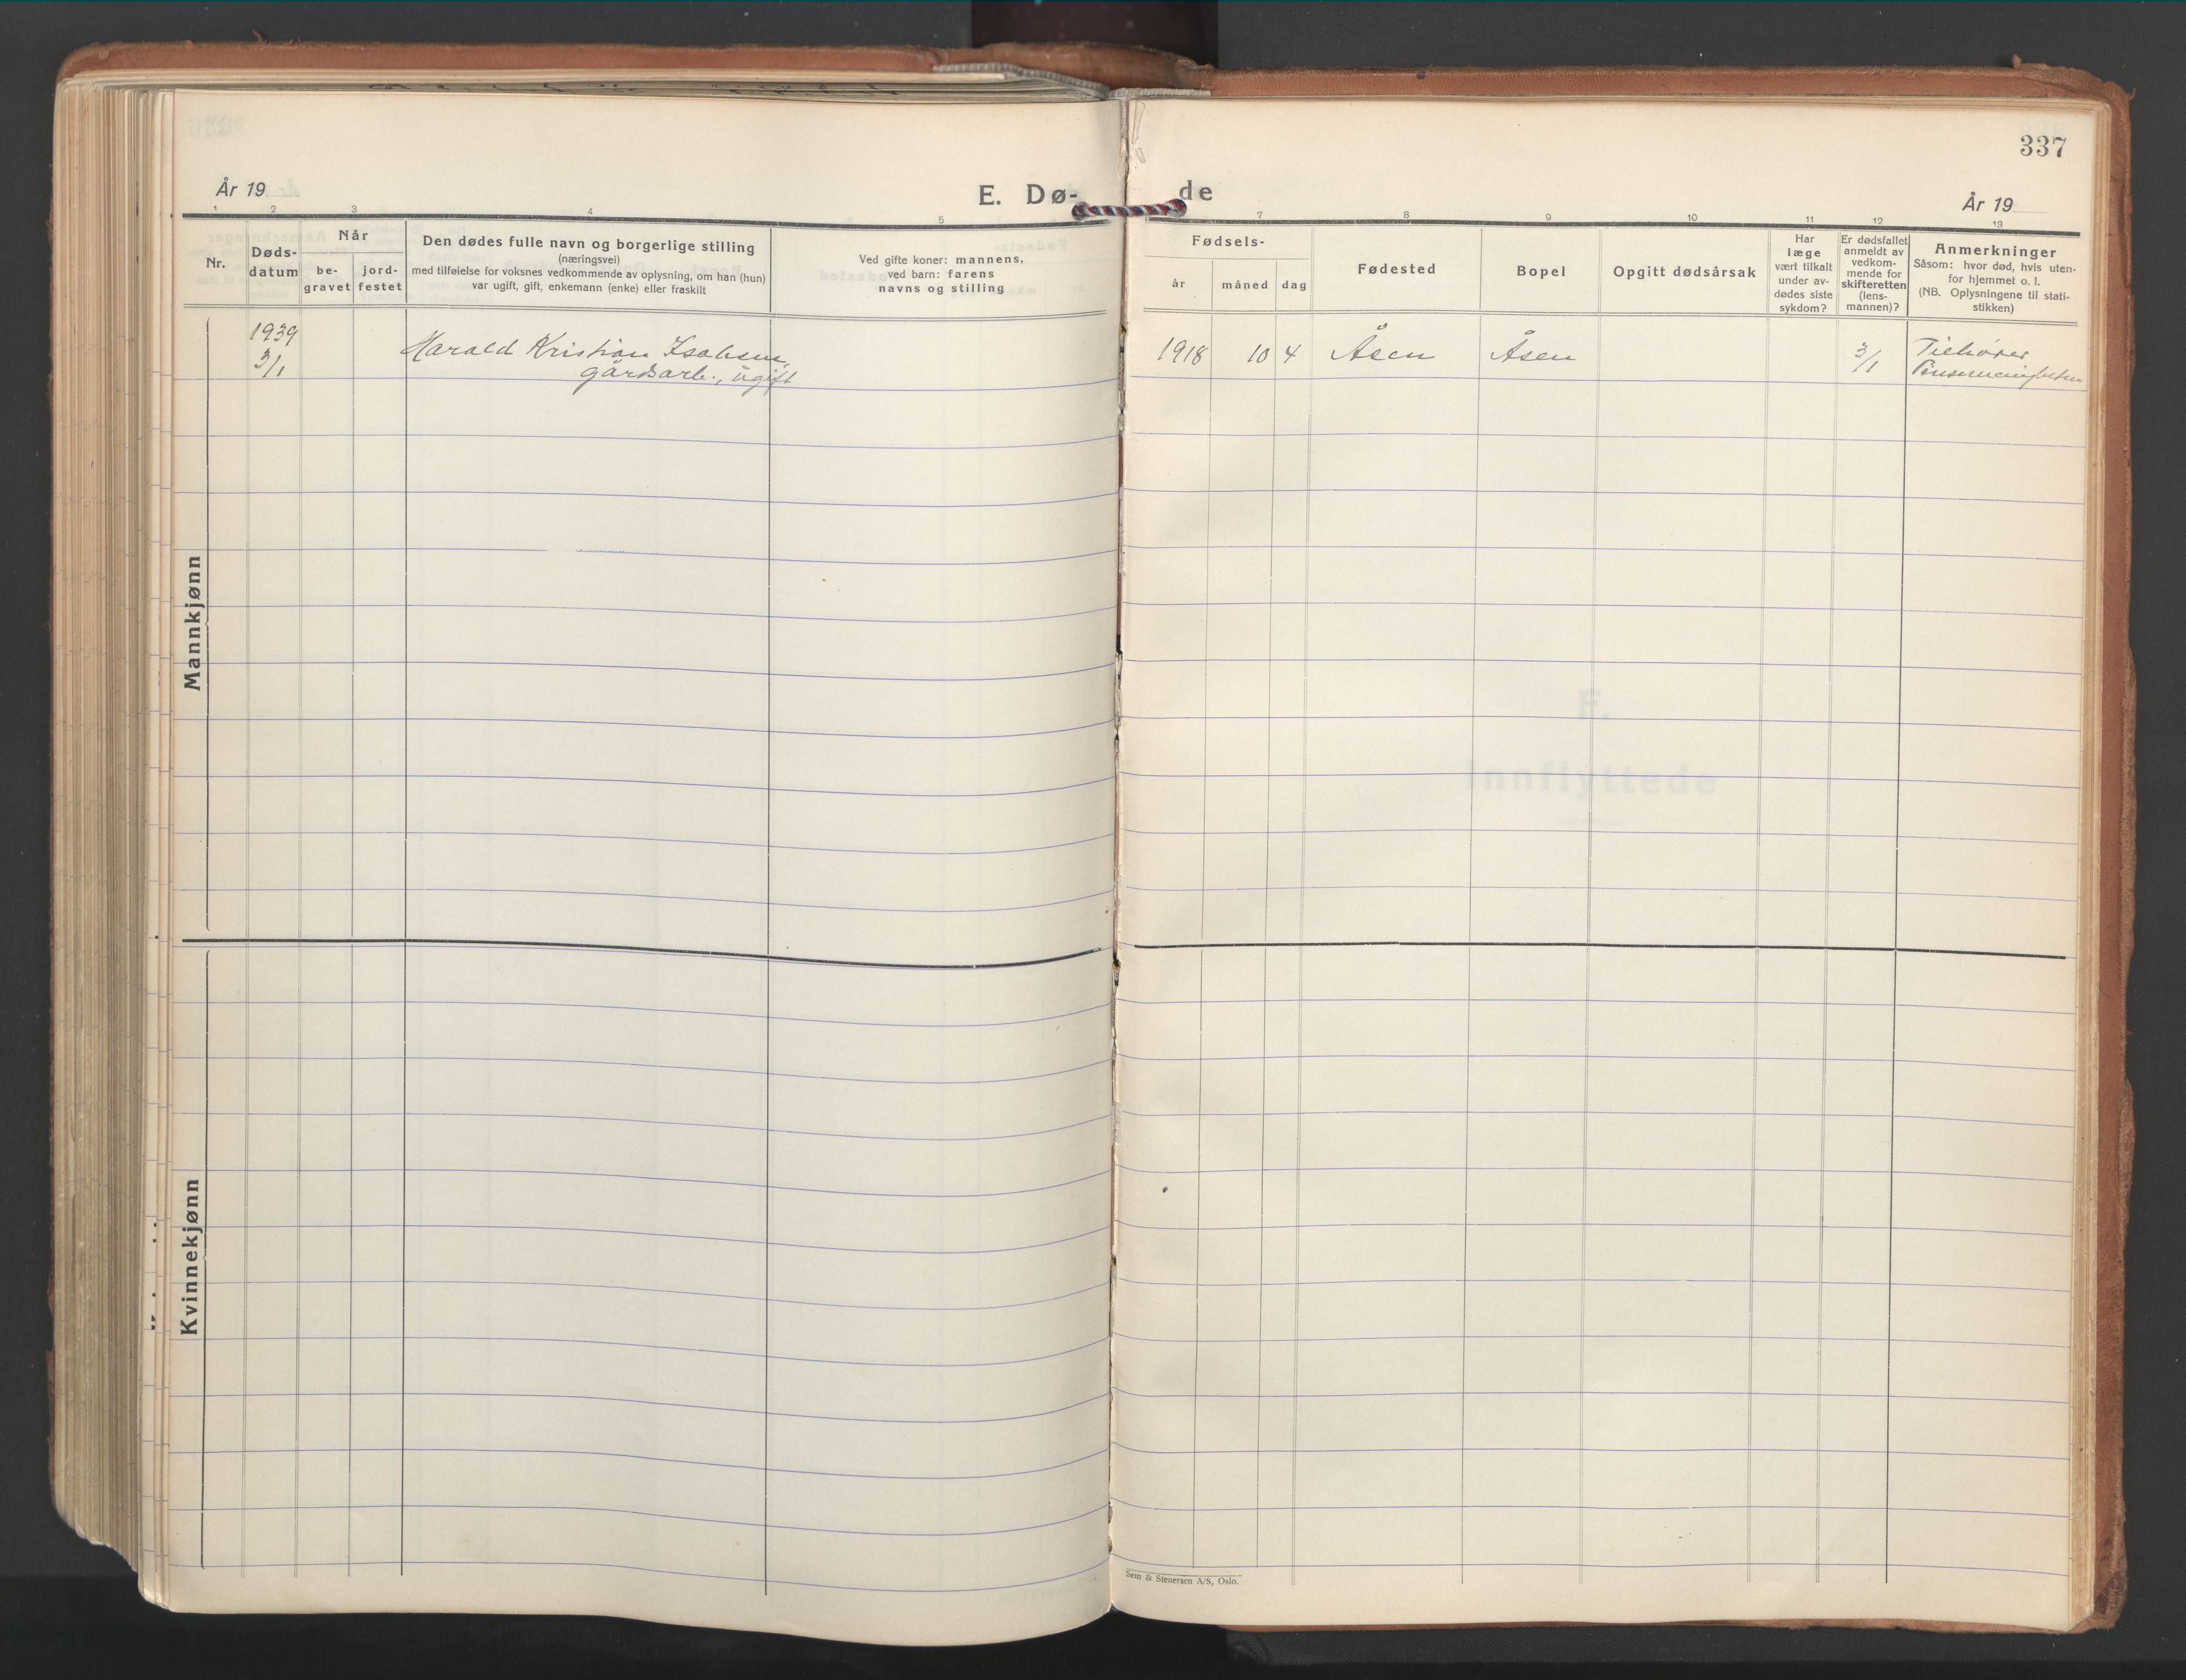 337
År 19
E. Dø-
de
År 19
1 2 3 4 5 7 8 9 10 11 12 13
Nr.
Døds-
datum
Når
be-
gravet
jord-
festet
Den dødes fulle navn og borgerlige stilling
(næringsvei)
med tilføielse for voksnes vedkommende av oplysning, om han (hun)
var ugift, gift, enkemann (enke) eller fraskilt
Ved gifte koner: mannens,
ved barn: farens
navns og stilling
Fødsels-
år måned dag
Fødested
Bopel
Opgitt dødsårsak
Har
læge
vært tilkalt
under av-
dødes siste
sykdom?
Er dødsfallet
anmeldt av
vedkom-
mende for
skifteretten
(lens-
mannen)?
Anmerkninger
Såsom: hvor død, hvis uten-
for hjemmet o. l.
(NB. Oplysningene til stati-
stikken)
1939
3/1
Harald Kristian Isaksen,
gårdsarb., ugift
1918 10 4 Åsen Åsen 3/1
Tilhører
Pinsemenigheten
Mannkjønn
F.
Innflyttede
Kvinnekjønn
Sem & Stenersen A/S, Oslo.